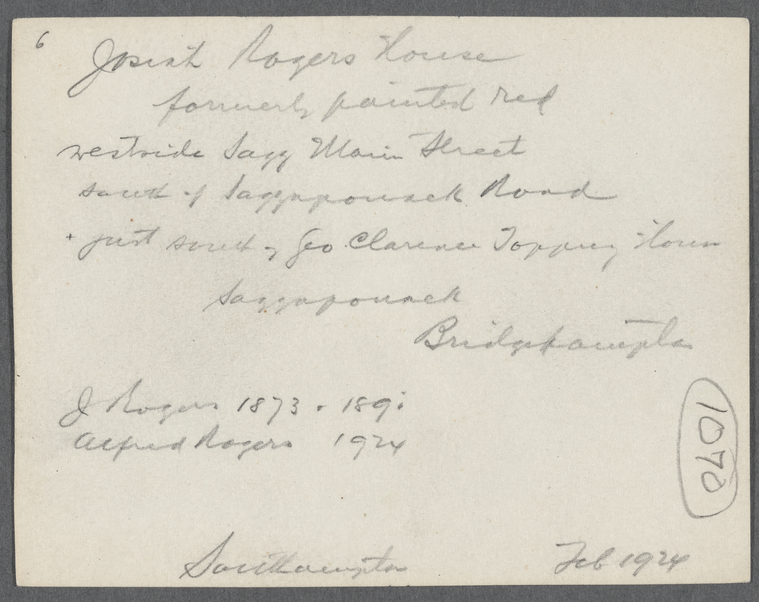 6
Josiah Rogers House
formerly painted red
westside Sagg Main Street
south of Saggapounack Road
+ just south of Geo Clarence Topping House
Saggapounack
Bridgehampton
J Rogers 1873 - 189
Alfred Rogers 1924
1070
Southampton Feb 1924